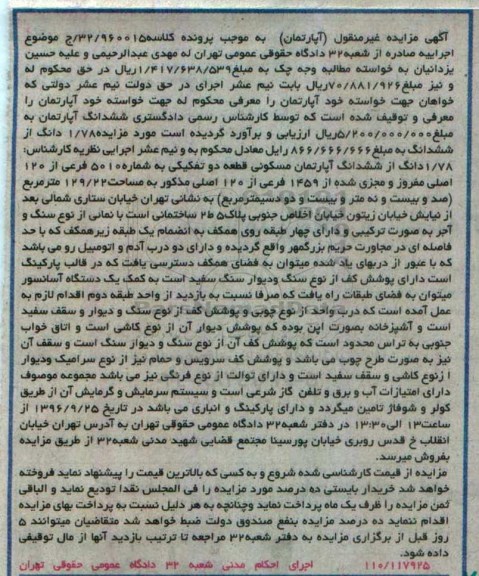 آگهی مزایده غیرمنقول (آپارتمان) به موجب پرونده کلاسه۳۲/۹۶۰۰۱۵/ج موضوع
اجراییه صادره از شعبه۳۲ دادگاه حقوقی عمومی تهران له مهدی عبدالرحیمی و علیه حسین
یزدانیان به خواسته مطالبه وجه چک به مبلغ۱/۴۱۷/۶۳۸/۵۳۹ریال در حق محکوم له
و نیز مبلغ۷۰/۸۸۱/۹۲۶ریال بابت نیم عشر اجرای در حق دولت نیم عشر دولتی که
خواهان جهت خواسته خود آپارتمان را معرفی محکوم له جهت خواسته خود آپارتمان را
معرفی و توقیف شده است که توسط کارشناس رسمی دادگستری ششدانگ آپارتمان به
مبلغ۵/۲۰۰/۰۰۰/۰۰۰ریال ارزیابی و برآورد گردیده است مورد مزایده۱/۷۸ دانگ از
ششدانگ به مبلغ۸۶۶/۶۶۶/۶۶۶ رایل معادل محکوم به و نیم عشر اجرایی نظریه کارشناس:
۱/۷۸دانگ از ششدانگ آپارتمان مسکونی قطعه دو تفکیکی به شماره۵۰۱۰ فرعی از ۱۲۰
اصلی مفروز و مجزی شده از ۱۴۵۹ فرعی از ۱۲۰ اصلی مذکور به مساحت۱۲۹/۲۲ مترمربع
(صد و بیست و نه متر و بیست و دو دسیمترمربع) به نشانی تهران خیابان ستاری شمالی بعد
از نیایش خیابان زیتون خیابان اخلاص جنوبی پلاک۲۶۵ ساختمانی است با نمائی از نوع سنگ و
آجر به صورت ترکیبی و دارای چهار طبقه روی همکف به انضمام یک طبقه زیرهمکف که با حد
فاصله ای در مجاورت حریم بزرگمهر واقع گردیده و دارای دو درب آدم و اتومبیل رو می باشد
که با عبور از دربهای یاد شده میتوان به فضای همکف دسترسی یافت که در قالب پارکینگ
است دارای پوشش کف از نوع سنگ ودیوار سنگ سفید است به کمک یک دستگاه آسانسور
میتوان به فضای طبقات راه یافت که صرفا نسبت به بازدید از واحد طبقه دوم اقدام لازم به
عمل آمده است که درب واحد از نوع چوبی و پوشش کف از نوع سنگ و دیوار و سقف سفید
است و آشپزخانه بصورت اپن بوده که پوشش دیوار آن از نوع کاشی است و اتاق خواب
جنوبی به تراس محدود است که پوشش کف آن از نوع سنگ و دیوار سنگ است و سقف آن
نیز به صورت طرح چوب می باشد و پوشش کف سرویس و حمام نیز از نوع سرامیک ودیوار
ا زنوع کاشی و سقف سفید است و دارای توالت از نوع فرنگی نیز می باشد مجموعه موصوف
دارای امتیازات آب و برق و تلفن گاز شرعی است و سیستم سرمایش و گرمایش آن از طریق
کولر و شوفاژ تامین میگردد و دارای پارکینگ و انباری می باشد در تاریخ ۱۳۹۶/۹/۲۵ از
ساعت۱۳ الی۱۳:۳۰ در دفتر شعبه۳۲ دادگاه عمومی حقوقی تهران به آدرس تهران خیابان
انقلاب خ قدس روبری خیابان پورسینا مجتمع قضایی شهید مدنی شعبه۳۲ از طریق مزایده
بفروش میرسد.
مزایده از قیمت کارشناسی شده شروع و به کسی که بالاترین قیمت را پیشنهاد نماید فروخته
خواهد شد خریدار بایستی ده درصد مورد مزایده را فی المجلس نقدا تودیع نماید و الباقی
ثمن مزایده را ظرف یک ماه پرداخت نماید وچنانچه به هر دلیل نسبت به پرداخت بهای مزایده
اقدام ننماید ده درصد مزایده بنفع صندوق دولت ضبط خواهد شد متقاضیان میتوانند ۵
روز قبل از برگزاری مزایده به دفتر شعبه۳۲ مراجعه تا ترتیب بازدید آنها از مال توقیفی
داده شود.
۱۱۰/۱۱۷۹۲۵ اجرای احکام مدنی شعبه ۳۲ دادگاه عمومی حقوقی تهران